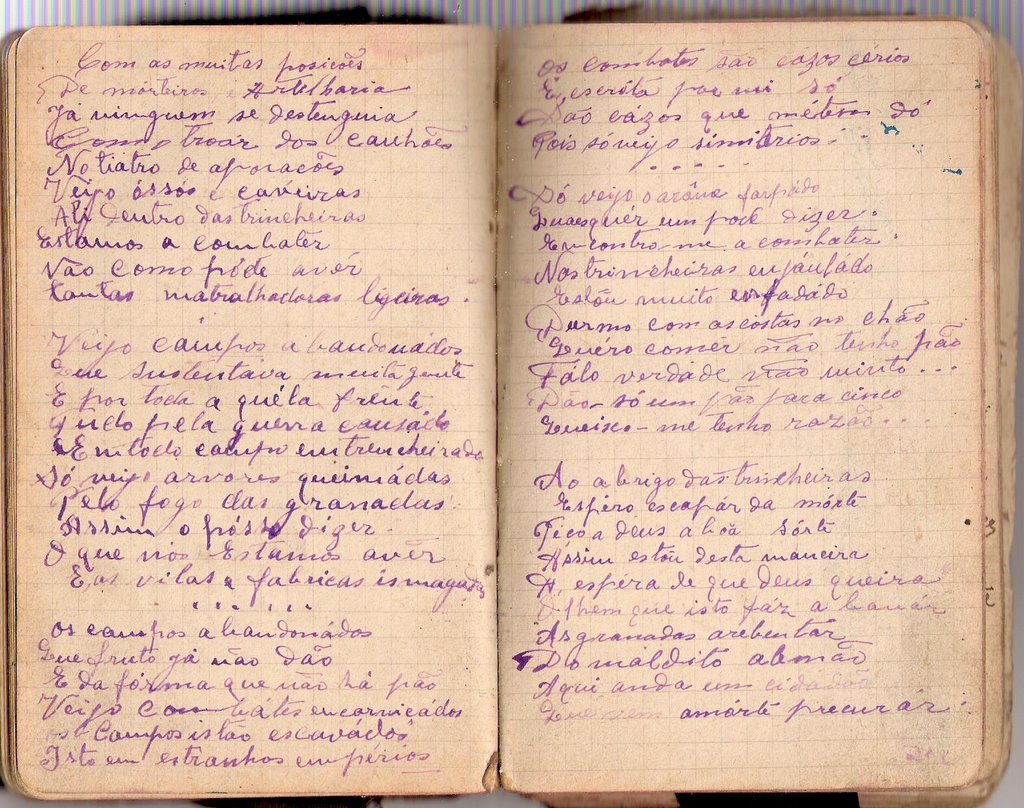 Com as muitas posicões
De morteiros e Artelharia
Já ninguem se destenguia
Com o troar dos canhões
No tiatro de aporacões
Veijo óssós e caveiras
Ali dentro das trincheiras
Estamos a combater
Vão como póde avér
tantas matralhadoras ligeiras.
Veijo campos abandonádos
Que sustentava muita gente
E por toda a quéla frente
Tudo pela guerra causádo
Em todo campo entrencheirado
Só veijo arvores queimádas
Pelo fogo das granadas
Assim o pósso dizer
O que nós Estamos avêr
E, as vilas e fabricas ismagadas
......
os campos abandonádos
Que fruto já não dão
E da fórma que não há pão
Veijo combátes encarnicados
os Campos istão escavádós
Isto em estranhos empérios
os combates são cázos cérios
É, escrita por mi só
São cázos que métem dó
Pois só veijo simitrios...
.....
Só veijo o aráme farpádo
Quaesquér um pode dizer.
Encontro-me a combater.
Nas trincheiras enjáuládo
Estou muito enfadádo
Durmo com as costas no chão
Quéro comêr não tenho pão
Fálo verdade não minto...
Dão-só um pão para cinco
Queixo-me tenho razão....
Ao abrigo das trincheiras
Espéro escapár da mórte
Peço a deus a boa sórte
Assim estou desta maneira
A, espera de que deus queira
que isto fáz a
As granadas arebentár
Do maldito alemão
Aqui anda um cidadão
Que vem amórte precurár.